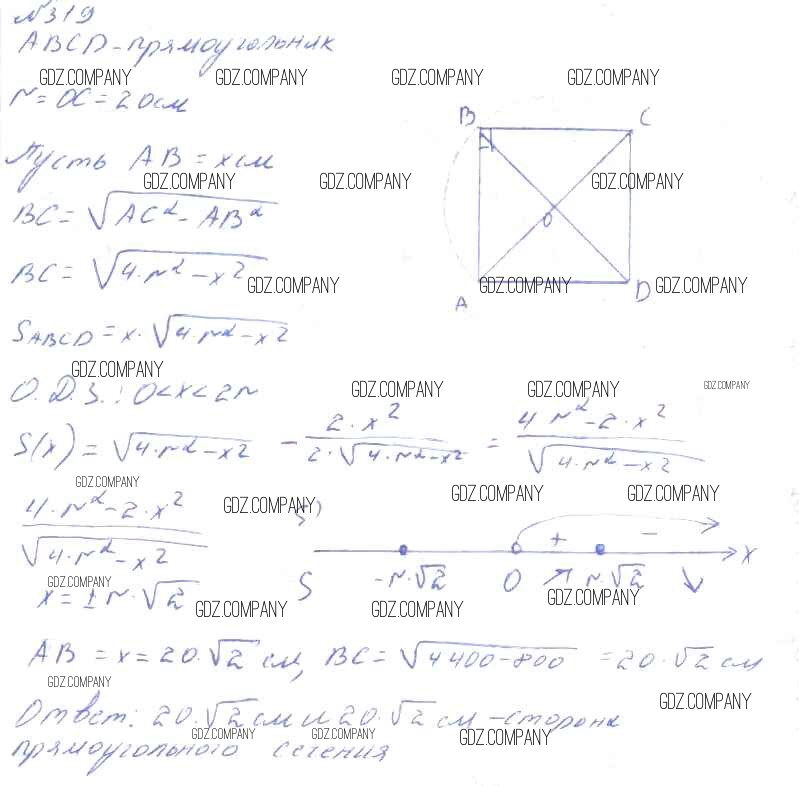 №319
ABCD-прямоугольник
GDZ.COMPANY GDZ.COMPANY GDZ.COMPANY GDZ.COMPANY
r = OC = 20см
B C
Пусть AB = x см
GDZ.COMPANY GDZ.COMPANY GDZ.COMPANY
BC = √(AC² - AB²)
O
BC = √(4·r² - x²)
GDZ.COMPANY GDZ.COMPANY GDZ.COMPANY
A D
S ABCD = x·√(4·r² - x²)
GDZ.COMPANY
О.Д.З.: 0<x<2r
GDZ.COMPANY GDZ.COMPANY GDZ.COMPANY
S(x) = √(4·r² - x²) - 2·x² / 2·√(4·r² - x²) = 4r² - 2·x² / √(4·r² - x²)
GDZ.COMPANY GDZ.COMPANY GDZ.COMPANY
4·r² - 2·x² / √(4·r² - x²)
GDZ.COMPANY
+ - x
S -r·√2 0 ↗ r·√2 ↘
GDZ.COMPANY
x = ± r·√2
GDZ.COMPANY GDZ.COMPANY GDZ.COMPANY
AB = x = 20·√2 см, BC = √(4400-800) = 20·√2 см
GDZ.COMPANY GDZ.COMPANY
Ответ: 20·√2 см и 20·√2 см - сторона
GDZ.COMPANY GDZ.COMPANY GDZ.COMPANY
прямоугольного сечения